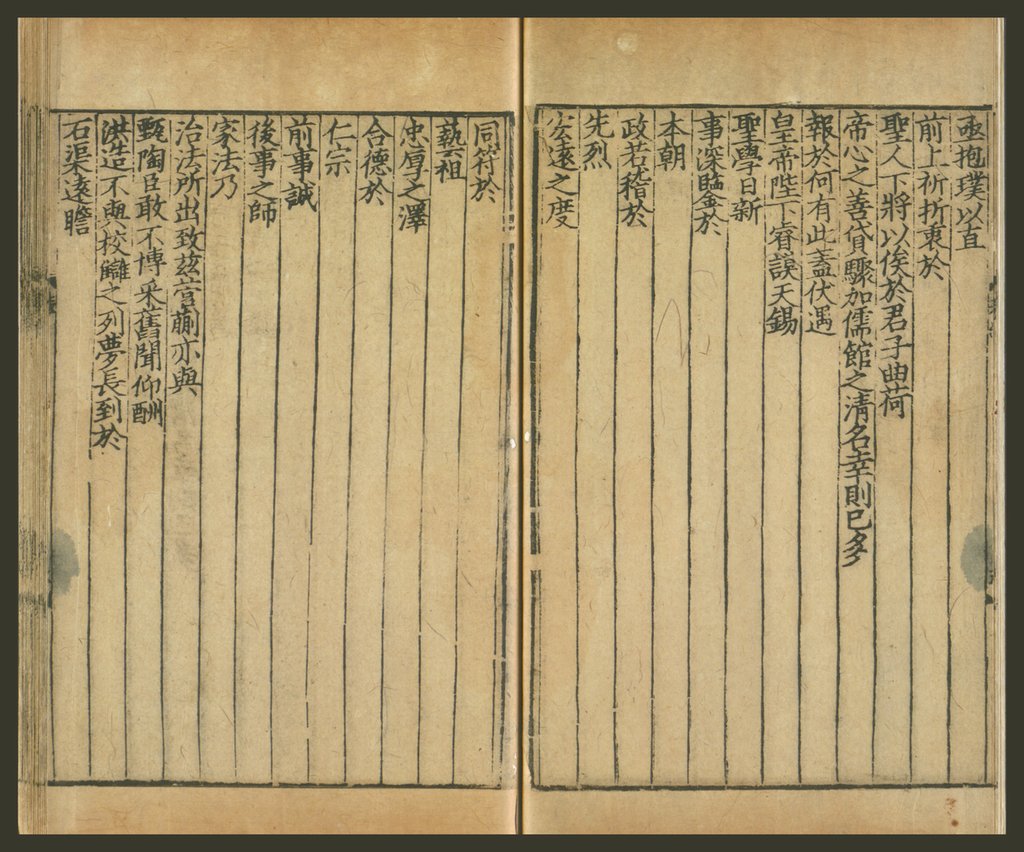 亟抱璞以直
前上祈折衷於
聖人下將以俟於君子曲荷
帝心之善貸驟加儒館之清名幸則已多
報於何有此蓋伏遇
皇帝陛下睿謨天錫
聖學日新
事深鑒於
本朝
政若稽於
先烈
公遠之度
同符於
藝祖
忠厚之澤
合德於
仁宗
前事誠
後事之師
家法乃
治法所出致茲菅蒯亦與
甄陶臣敢不博采舊聞仰酬
洪造不輿校讎之列夢長到於
石渠遠瞻